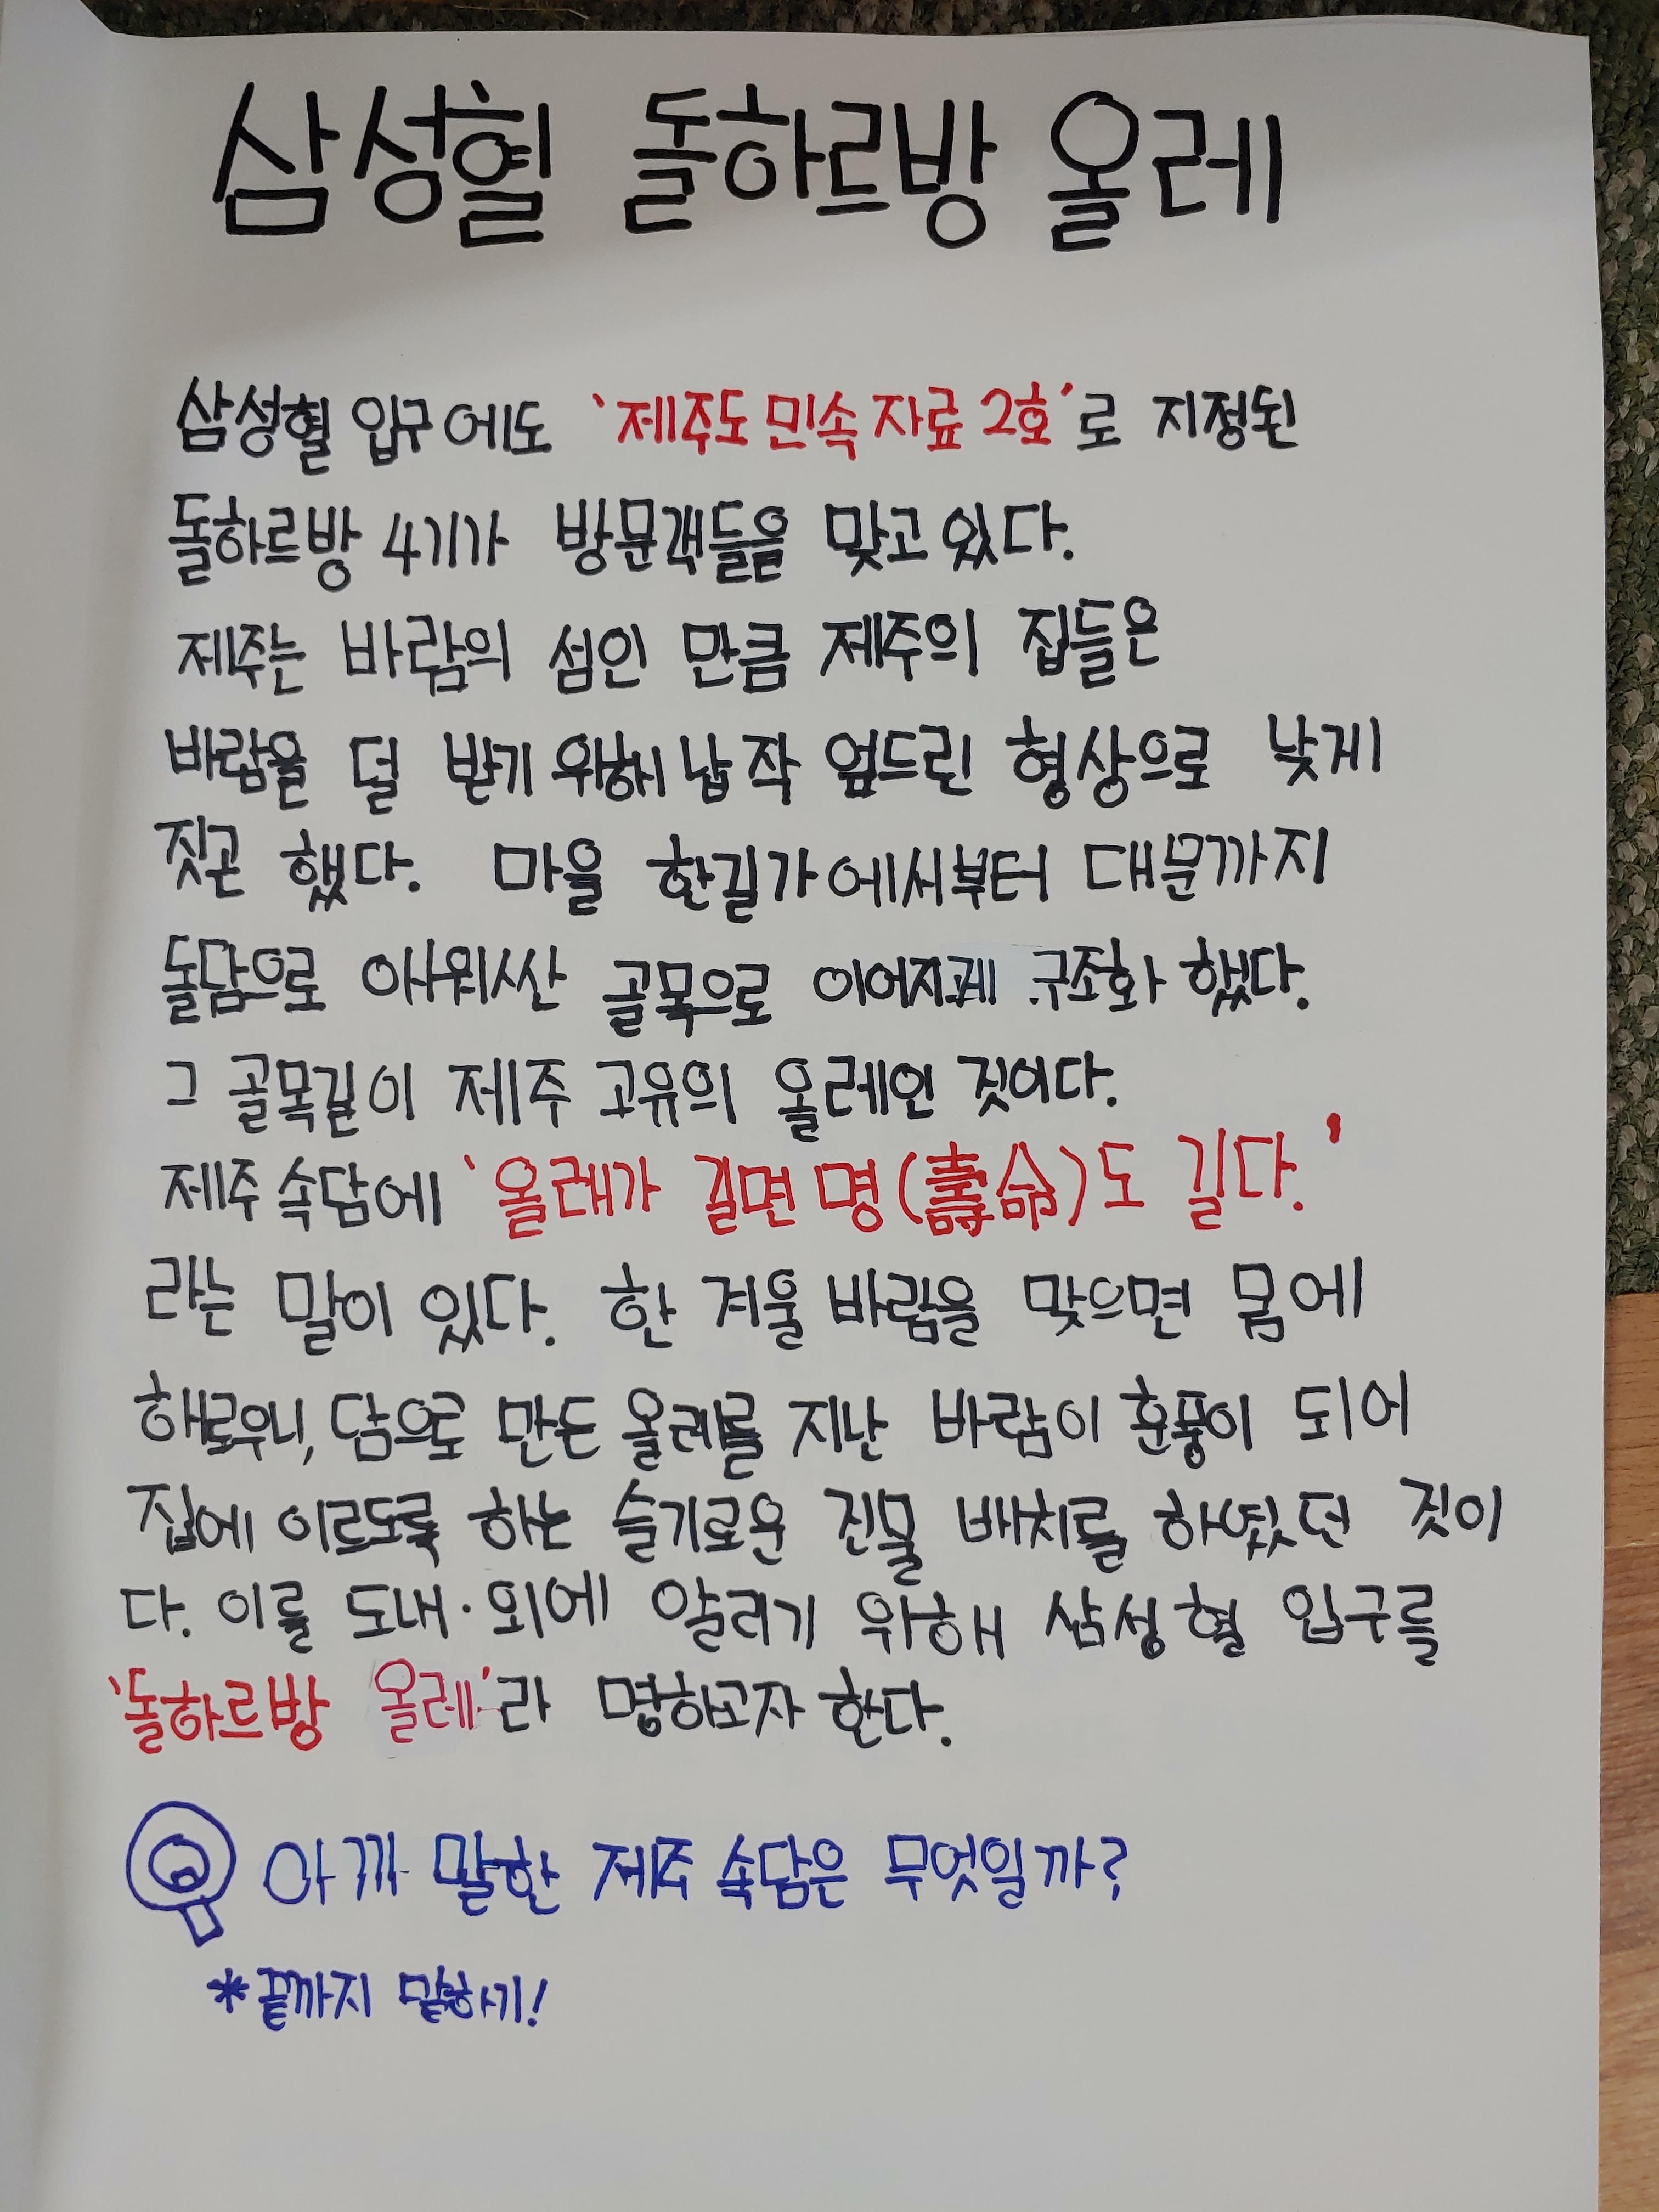 삼성혈 돌하르방 올레
삼성혈 입구에도 '제주도 민속 자료 2호'로 지정된
돌하르방 4기가 방문객들을 맞고 있다.
제주는 바람의 섬인 만큼 제주의 집들은
바람을 덜 받기 위해 납작 엎드린 형상으로 낮게
짓곤 했다. 마을 한길가에서부터 대문까지
돌담으로 아워싼 골목으로 이어지게 구조화 했다.
그 골목길이 제주 고유의 올레인 것이다.
제주 속담에 '올레가 길면 명(壽命)도 길다.'
라는 말이 있다. 한 겨울 바람을 맞으면 몸에
해로우니, 담으로 만든 올레를 지난 바람이 훈풍이 되어
집에 이르도록 하는 슬기로운 건물 배치를 하였던 것이
다. 이를 도내·외에 알리기 위해 삼성혈 입구를
'돌하르방 올레'라 명하고자 한다.
아까 말한 제주 속담은 무엇일까?
*끝까지 말하기!